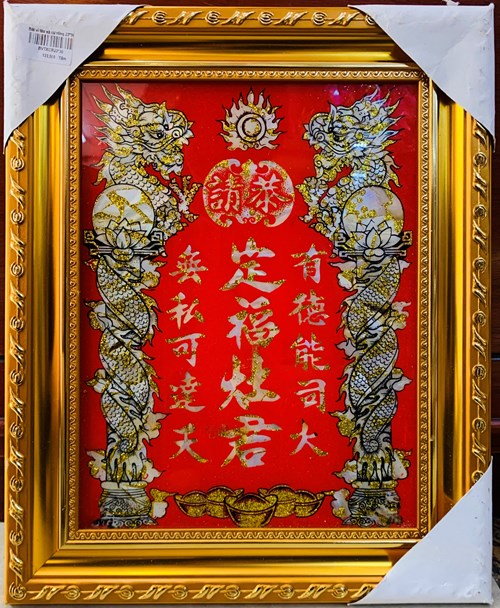 恭請
有德能司大
定福灶君
無私可達天